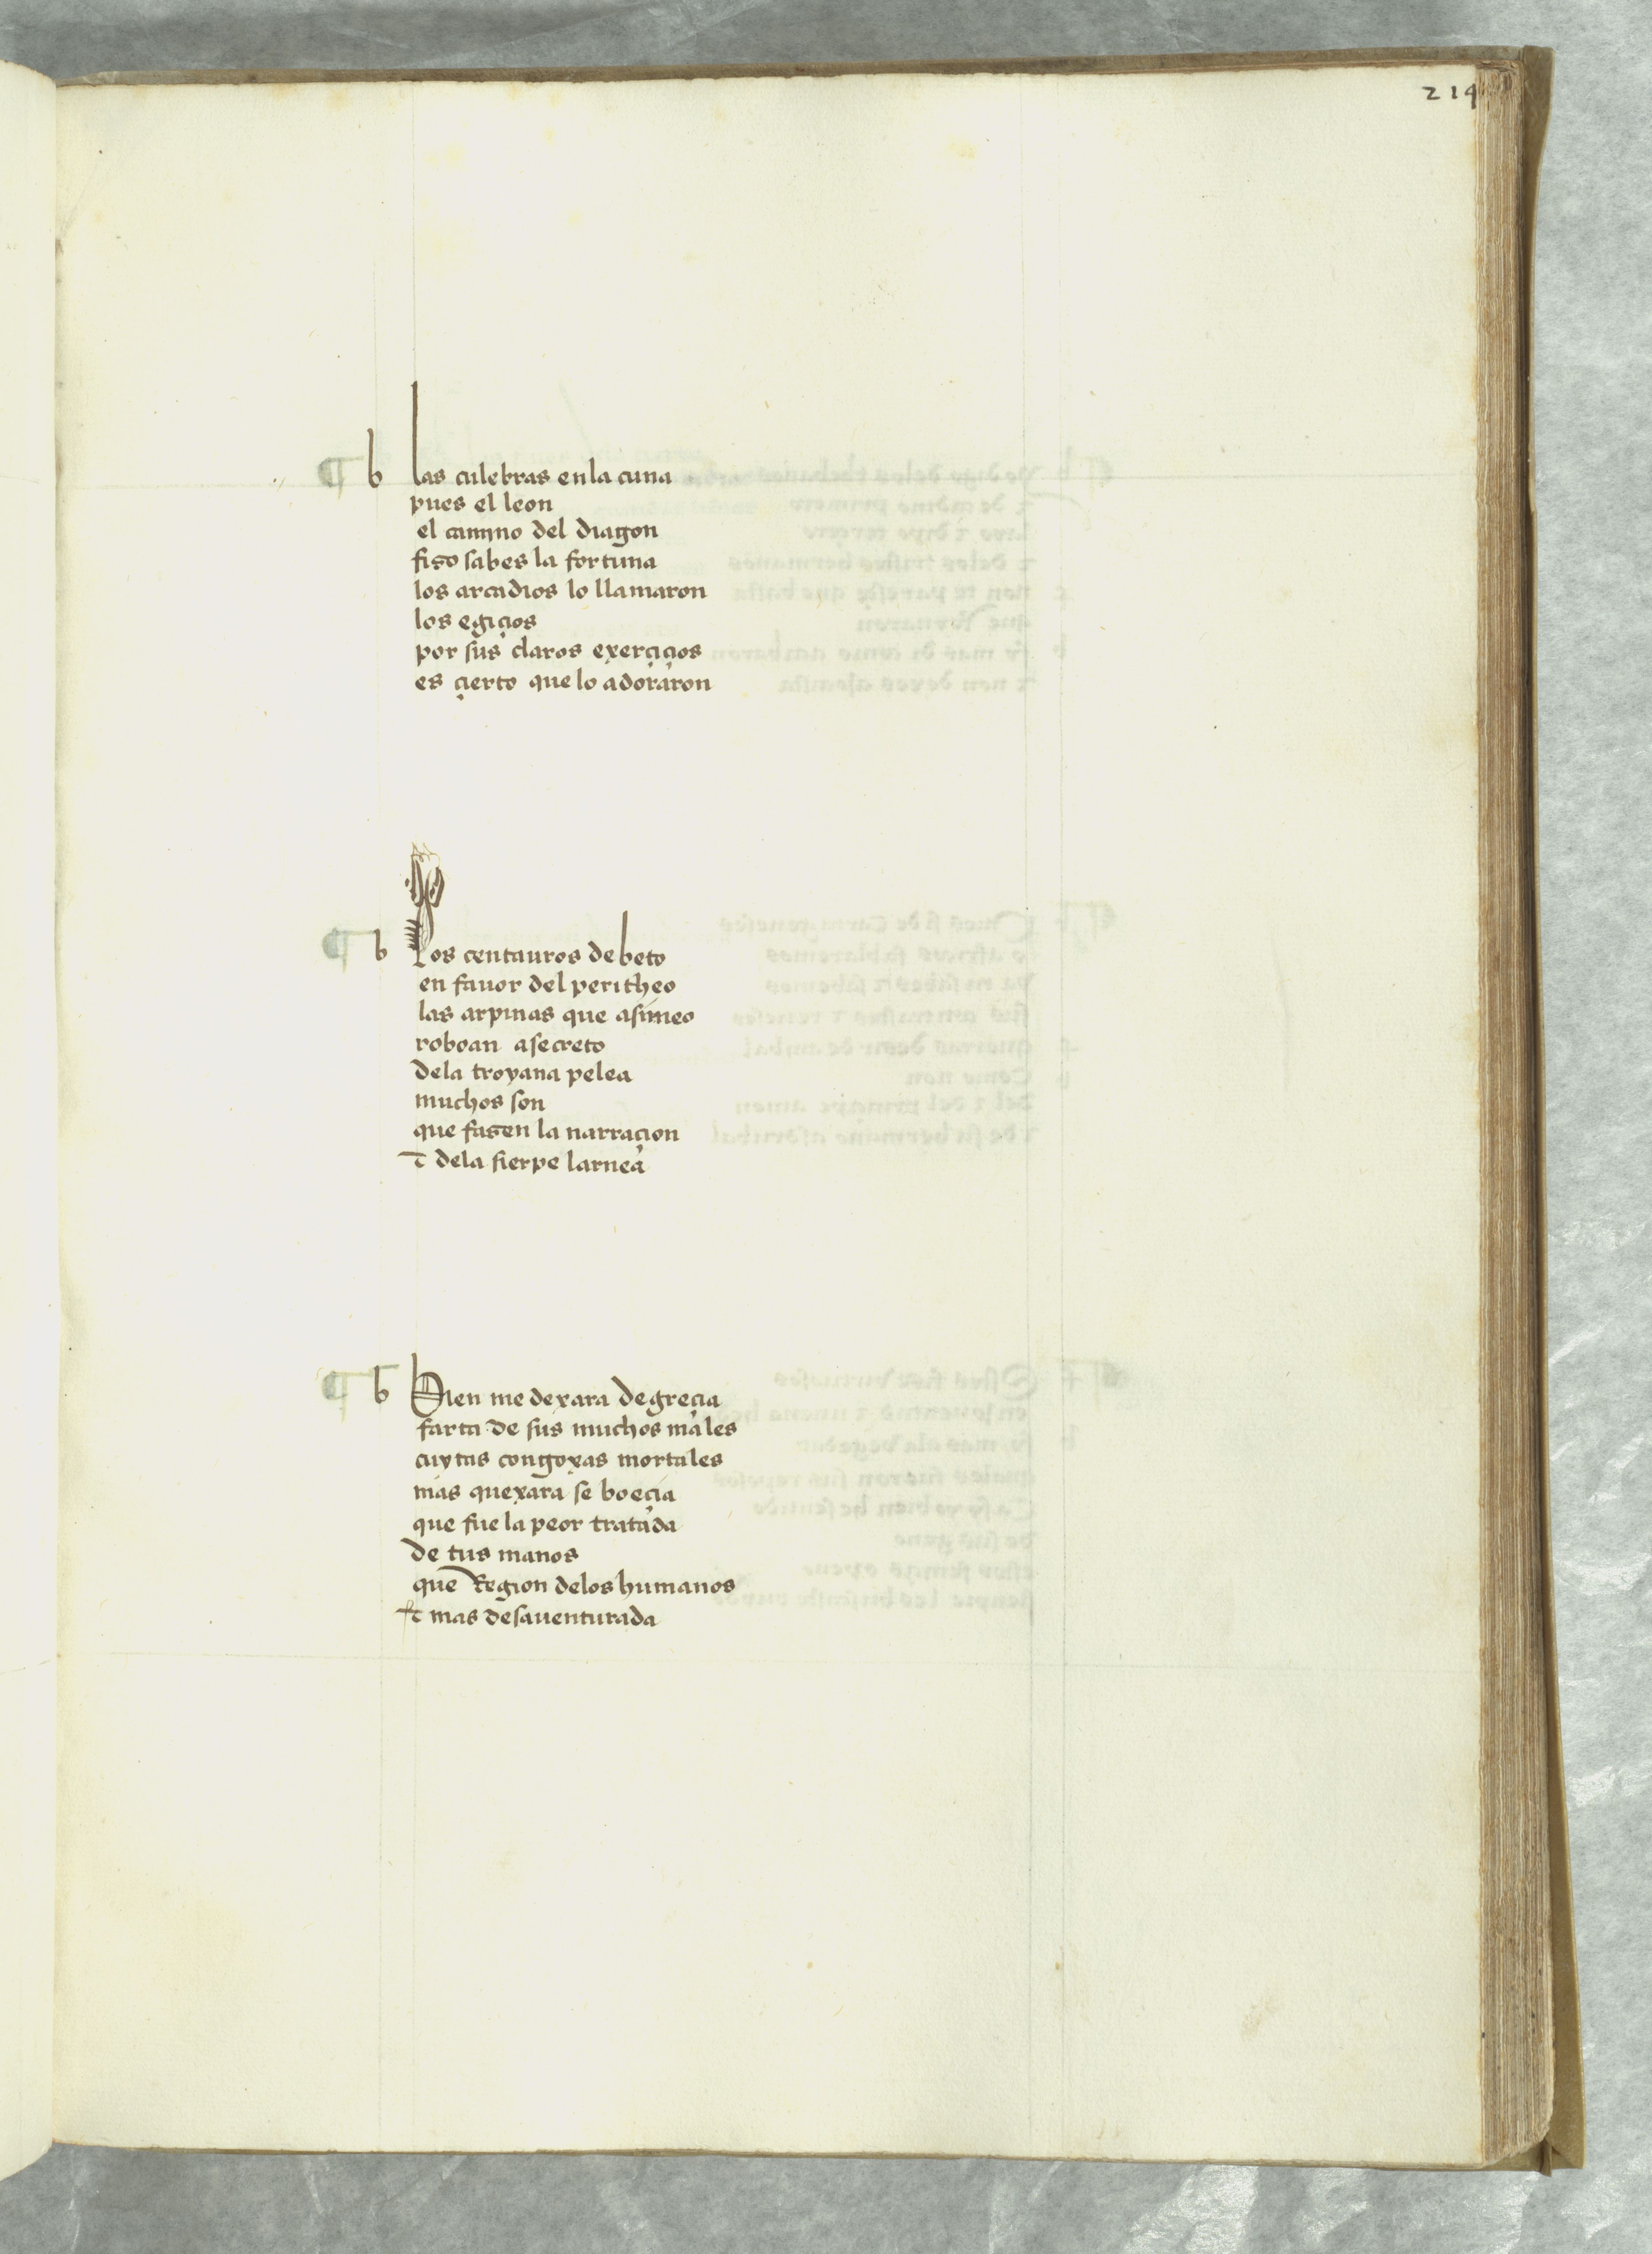 214
¶ b las culebras en la cuna
pues el leon
el camyno del diagon
fizo sabes la fortuna
los arcadios lo llamaron
los egiçios
por sus claros exerçiçios
es çierto que lo adoraron
¶ b Los centauros debeto
en fauor del peritheo
las arpinas que asineo
roboan asecreto
dela troyana pelea
muchos son
que fazen la narraçion
τ dela sierpe larnea
¶ b Bien me dexara degreçia
farta de sus muchos males
cuytas congoxas mortales
mas quexara se boeçia
que fue la peor tratada
de tus manos
que Region delos humanos
τ mas desauenturada